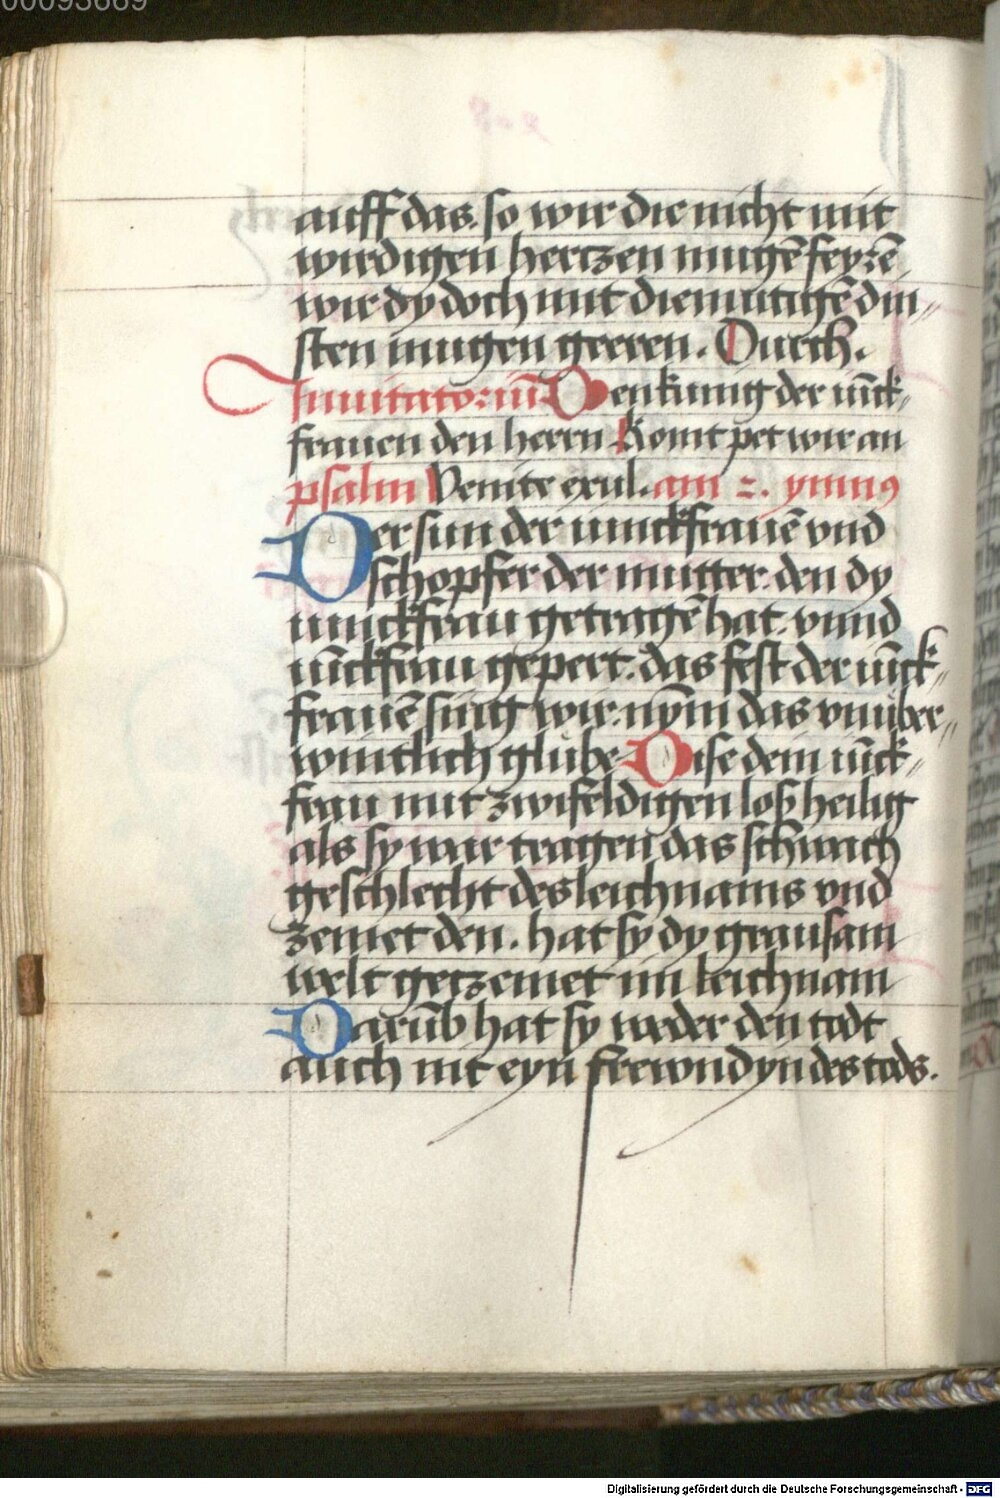 00093669
auff das. so wir die nicht mit
wirdigen hertzen mugē feyrē
wir dy doch mit diemutigē din〃
sten mugen geeren. Durch.
Inuitatoriū Den kunig der iūck〃
frauen den herrn Komt pet wir an
psalm Venite exul. am 2. ymnꝰ
Der sun der iunckfrauē vnd
schopfer der mutter. den dy
iunckfrau getragē hat. vnnd
iūckfrau gepert. das fest der iūck〃
frauē sing wir. nȳm das vnuber〃
wintlich glube Dise dein iūck〃
frau mit zwifeldigen loß heilig
als sy war tragen das schwach
geschlecht des leichnams vnd
zemet den. hat sy dy grausam
welt getzemet im leichnam
Darūb hat sy weder den todt
auch nit eyn frewndyn des tods.
Digitalisierung gefördert durch die Deutsche Forschungsgemeinschaft - DFG